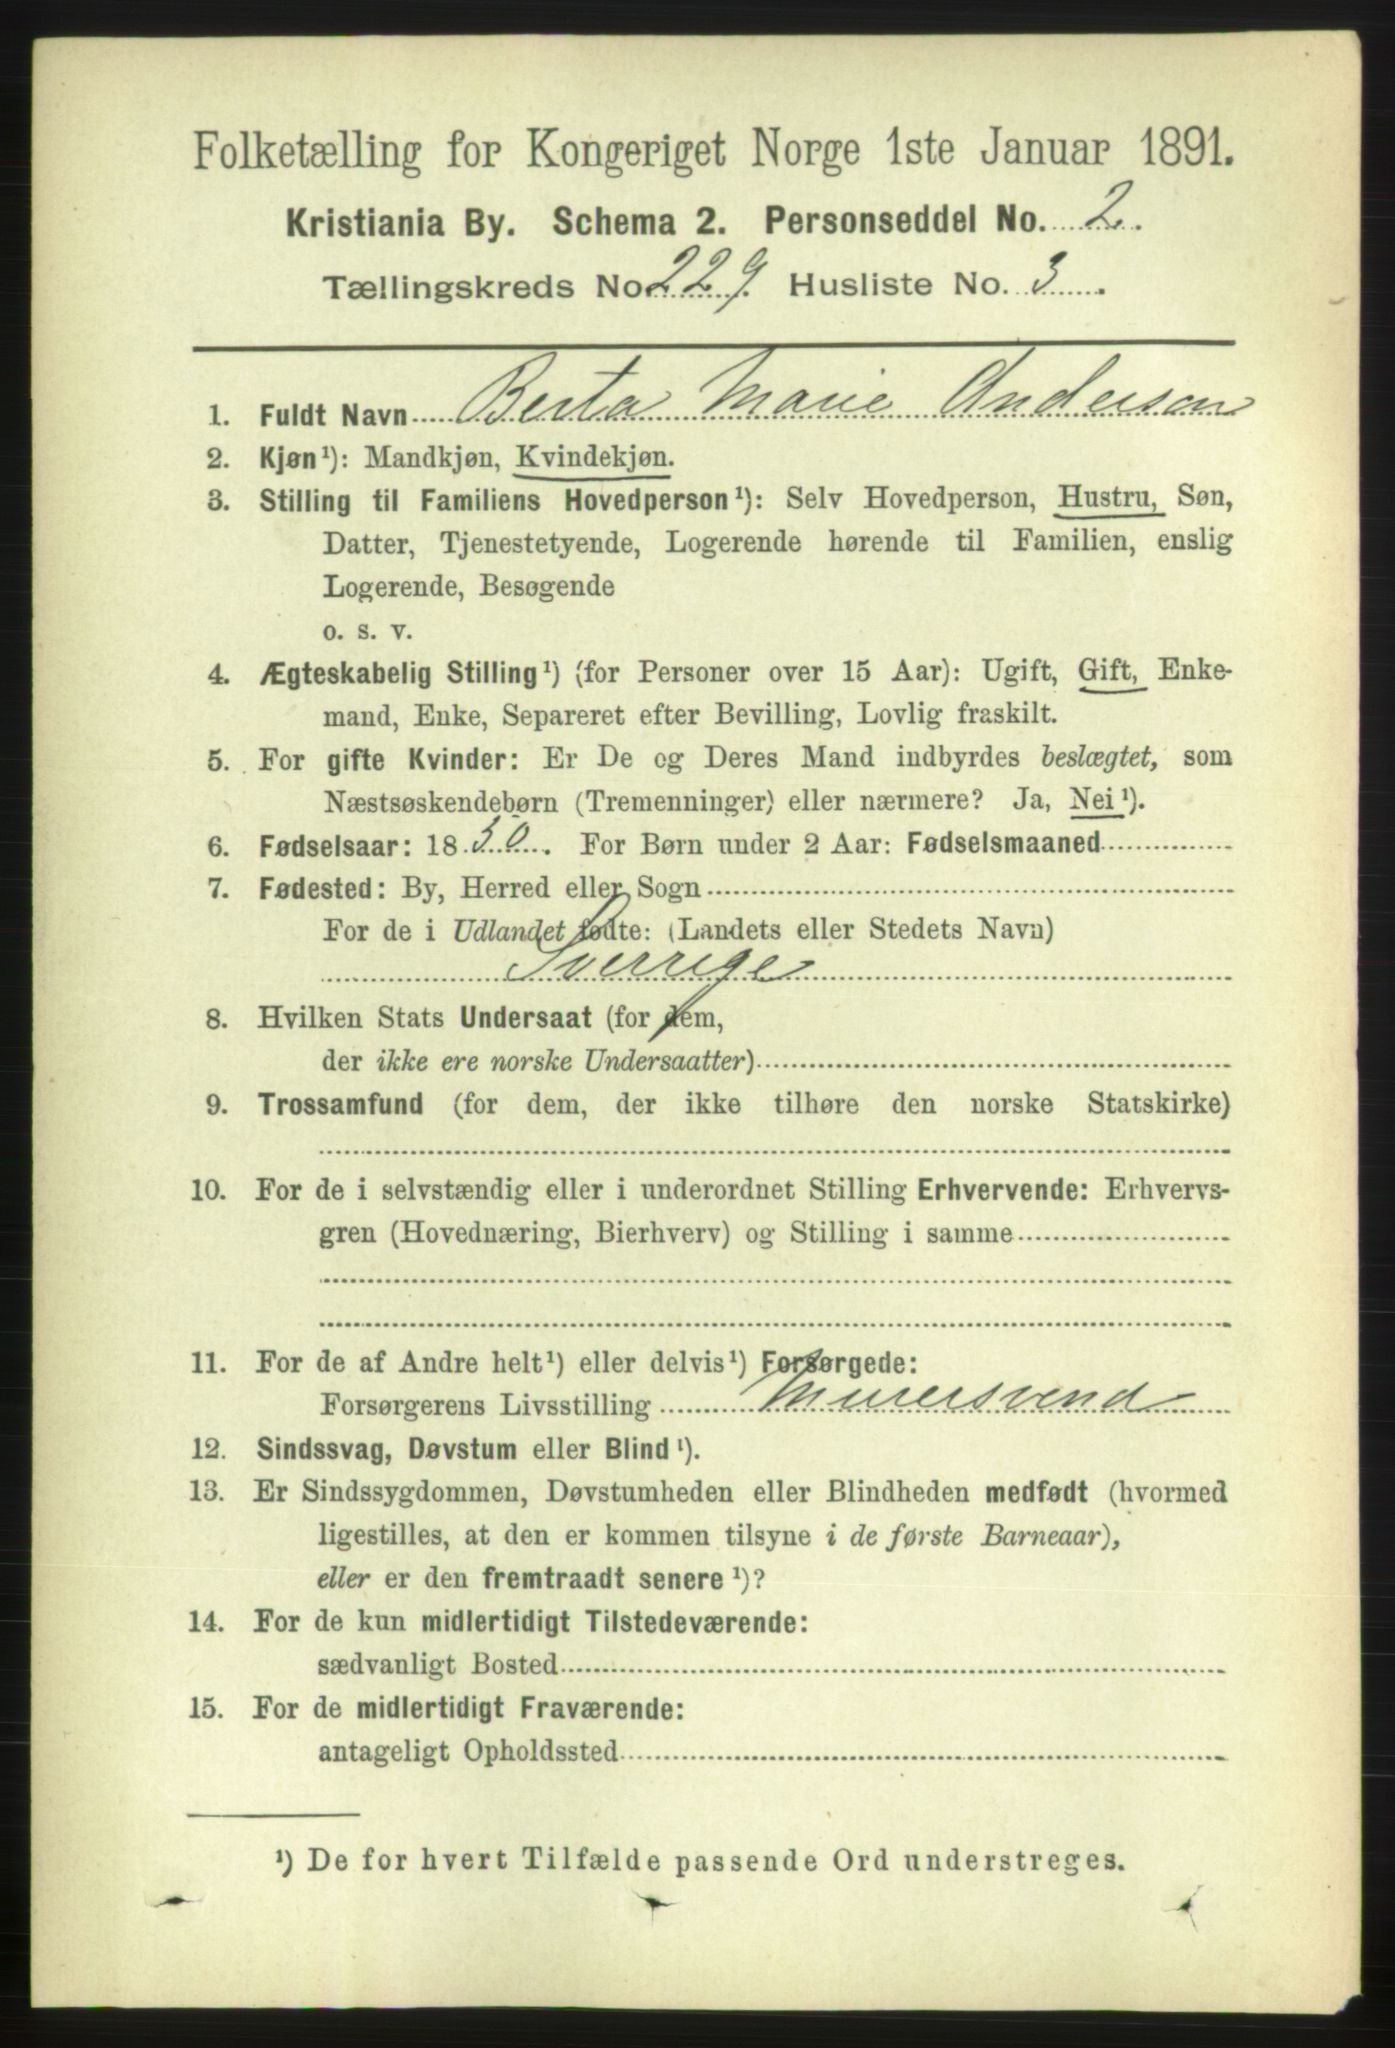 Folketælling for Kongeriget Norge 1ste Januar 1891.
Kristiania By. Schema 2. Personseddel No. 2.
Tællingskreds No. 229. Husliste No. 3.
1. Fuldt Navn Berta Marie Anderson
2. Kjøn¹): Mandkjøn, Kvindekjøn.
3. Stilling til Familiens Hovedperson¹): Selv Hovedperson, Hustru, Søn,
Datter, Tjenestetyende, Logerende hørende til Familien, enslig
Logerende, Besøgende
o. s. v.
4. Ægteskabelig Stilling¹) (for Personer over 15 Aar): Ugift, Gift, Enke-
mand, Enke, Separeret efter Bevilling, Lovlig fraskilt.
5. For gifte Kvinder: Er De og Deres Mand indbyrdes beslægtet, som
Næstsøskendebørn (Tremenninger) eller nærmere? Ja, Nei¹).
6. Fødselsaar: 1850. For Børn under 2 Aar: Fødselsmaaned
7. Fødested: By, Herred eller Sogn
For de i Udlandet fødte: (Landets eller Stedets Navn)
Sverrige
8. Hvilken Stats Undersaat (for dem,
der ikke ere norske Undersaatter)
9. Trossamfund (for dem, der ikke tilhøre den norske Statskirke)
10. For de i selvstændig eller i underordnet Stilling Erhvervende: Erhvervs-
gren (Hovednæring, Bierhverv) og Stilling i samme
11. For de af Andre helt¹) eller delvis¹) Forsørgede:
Forsørgerens Livsstilling Murersvend
12. Sindssvag, Døvstum eller Blind¹).
13. Er Sindssygdommen, Døvstumheden eller Blindheden medfødt (hvormed
ligestilles, at den er kommen tilsyne i de første Barneaar),
eller er den fremtraadt senere¹)?
14. For de kun midlertidigt Tilstedeværende:
sædvanligt Bosted
15. For de midlertidigt Fraværende:
antageligt Opholdssted
¹) De for hvert Tilfælde passende Ord understreges.